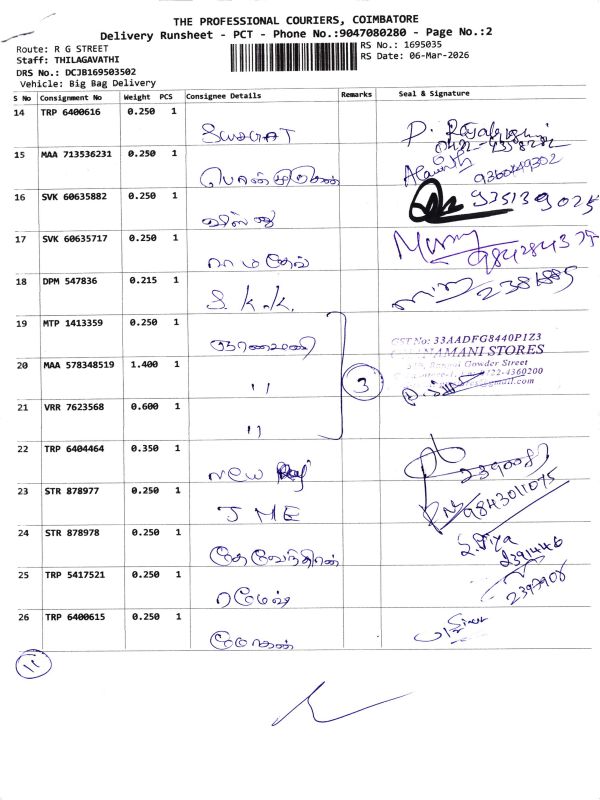 THE PROFESSIONAL COURIERS, COIMBATORE
Delivery Runsheet - PCT - Phone No.:9047080280 - Page No.:2
Route: R G STREET
RS No.: 1695035
Staff: THILAGAVATHI
RS Date: 06-Mar-2026
DRS No.: DCJB169503502
Vehicle: Big Bag Delivery
S No Consignment No Weight PCS Consignee Details Remarks Seal & Signature
14 TRP 6400616 0.250 1
SWAGAT
15 MAA 713536231 0.250 1
9360849302
16 SVK 60635882 0.250 1
935139025
17 SVK 60635717 0.250 1
ராமதேவ்
18 DPM 547836 0.215 1
S.K.K.
19 MTP 1413359 0.250 1
ஞானமணி
GST No: 33AADFG8440P1Z3
20 MAA 578348519 1.400 1
"
3
21 VRR 7623568 0.600 1
"
22 TRP 6404464 0.350 1
New
23 STR 878977 0.250 1
JME
9843011075
24 STR 878978 0.250 1
தேவேந்திரன்
2391446
25 TRP 5417521 0.250 1
ரமேஷ்
26 TRP 6400615 0.250 1
மோகன்
11